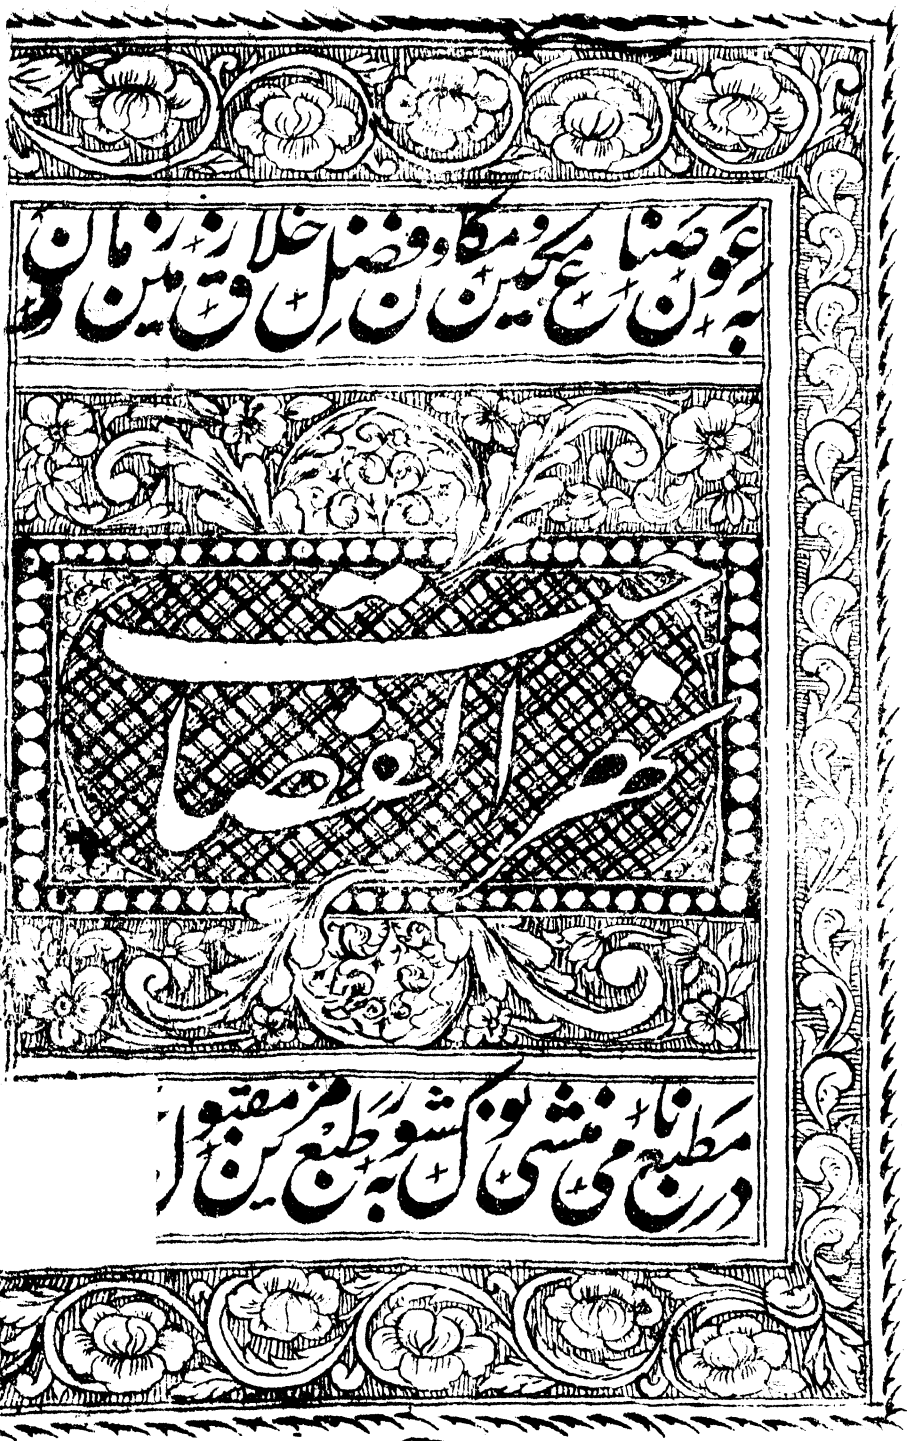 بعون صناع مکین و مکان و فضل خلاق زمین و زمان
نهر الفصاحت
در مطبع نامی منشی نولکشور بطبع مزین مقبول